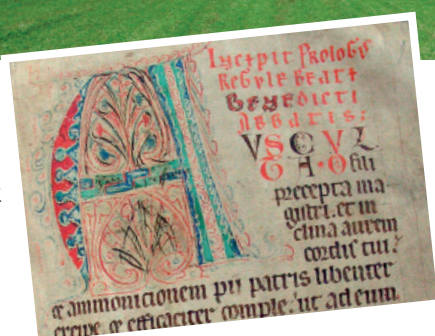 Incipit Prologus
Regule beati
Benedicti
Abbatis;
VSCVL
TA·O fili
precepta ma
gistri. et in
clina aurem
cordis tui;
& ammonicionem pii patris libenter
excipe & efficaciter comple; ut ad eum